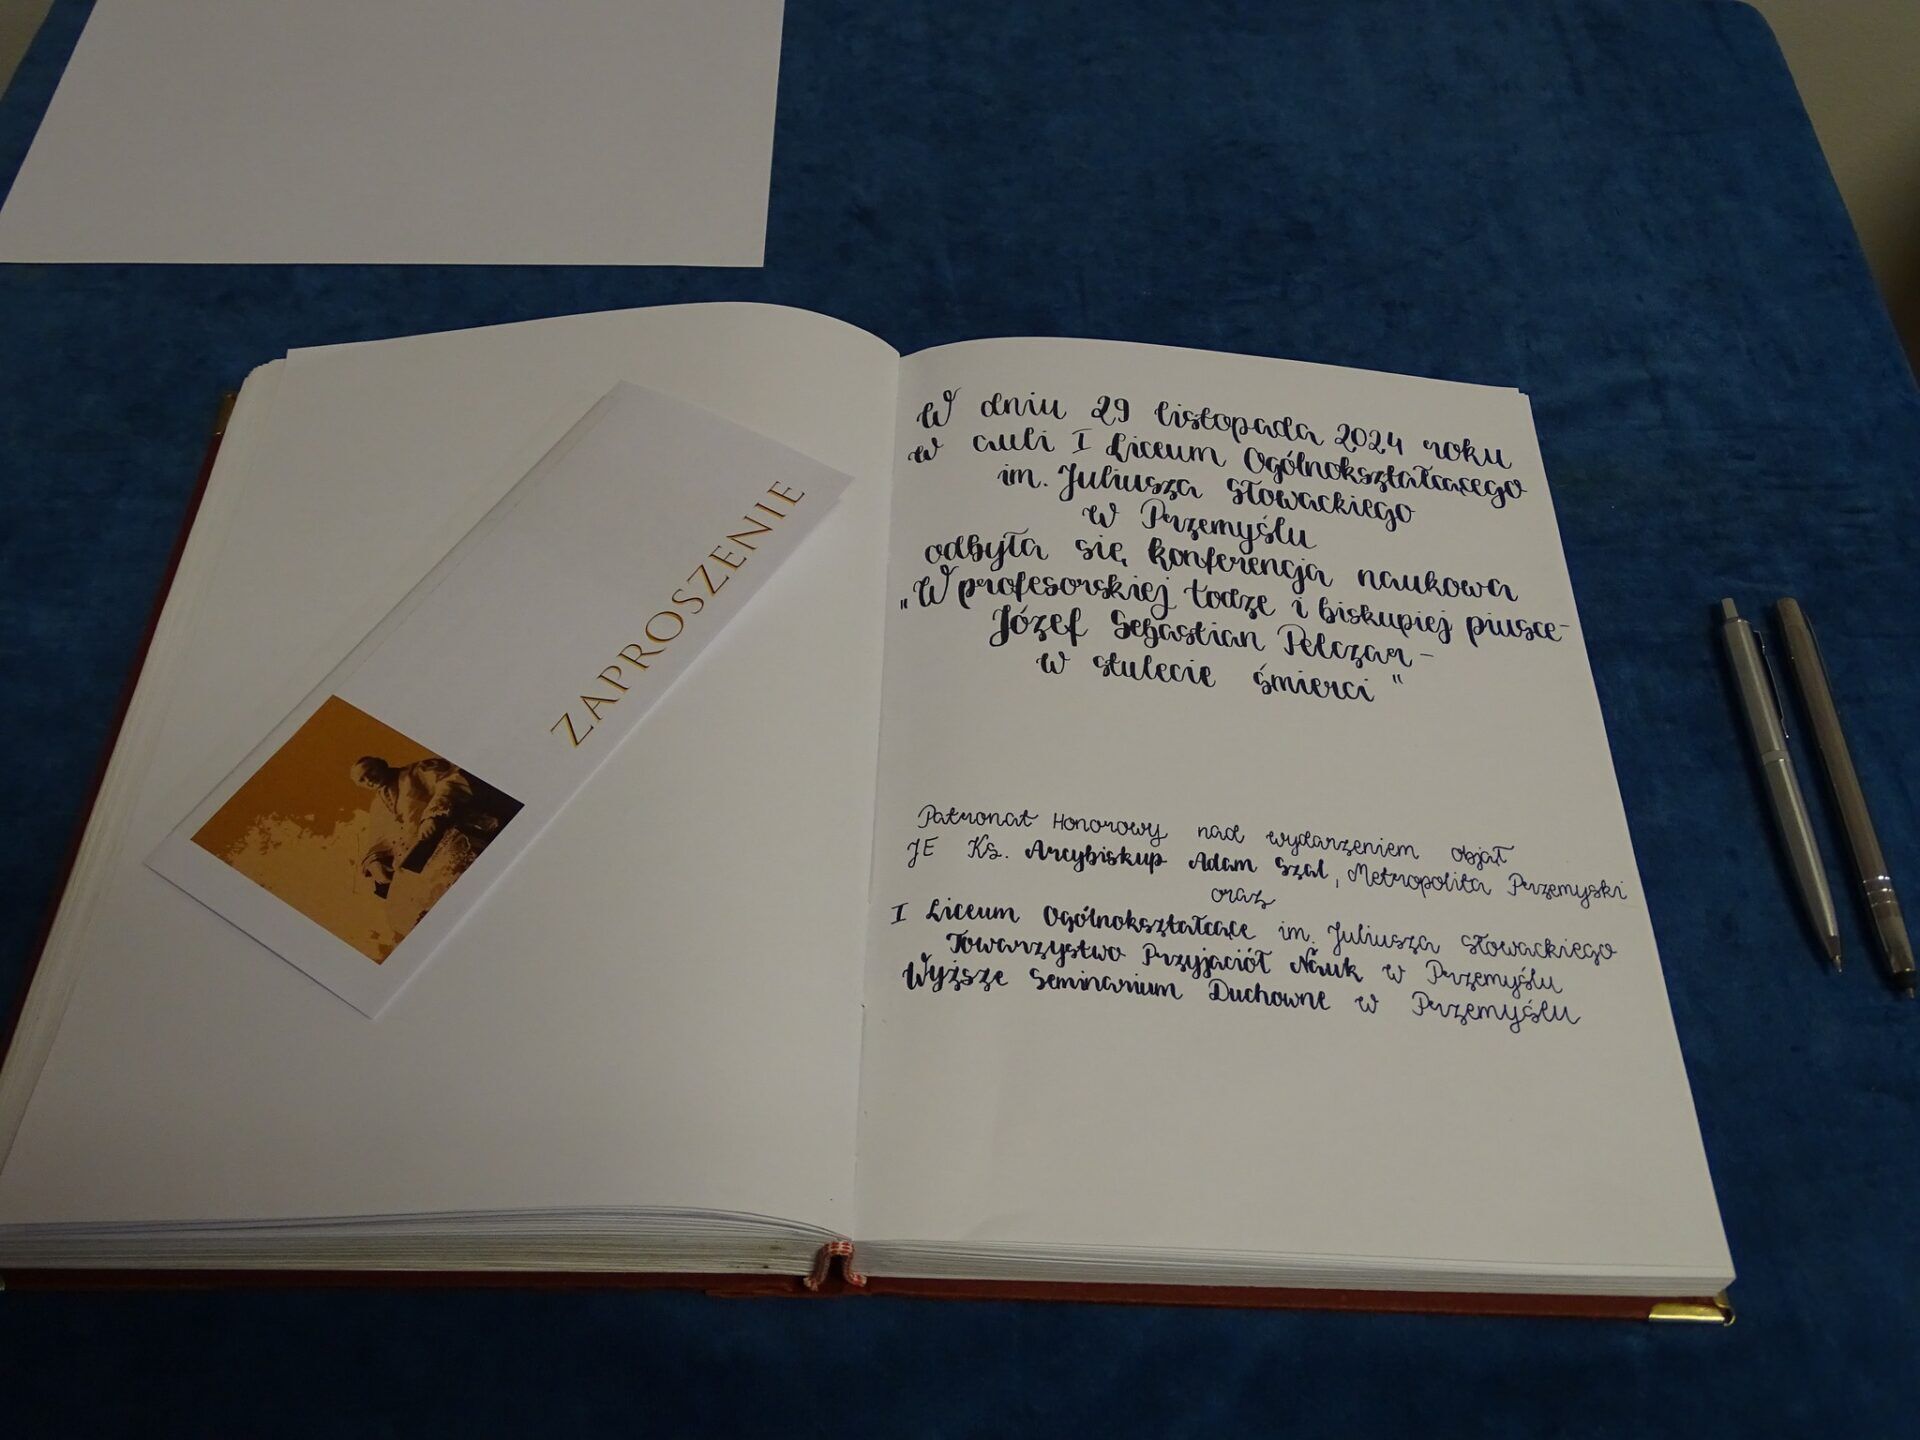 ZAPROSZENIE
W dniu 29 listopada 2024 roku
w auli I Liceum Ogólnokształcącego
im. Juliusza Słowackiego
w Przemyślu
odbyła się konferencja naukowa
„W profesorskiej todze i biskupiej piusce –
Józef Sebastian Pelczar –
w stulecie śmierci"
Patronat Honorowy nad wydarzeniem objął
JE Ks. Arcybiskup Adam Szal, Metropolita Przemyski
oraz
I Liceum Ogólnokształcące im. Juliusza Słowackiego
Towarzystwo Przyjaciół Nauk w Przemyślu
Wyższe Seminarium Duchowne w Przemyślu